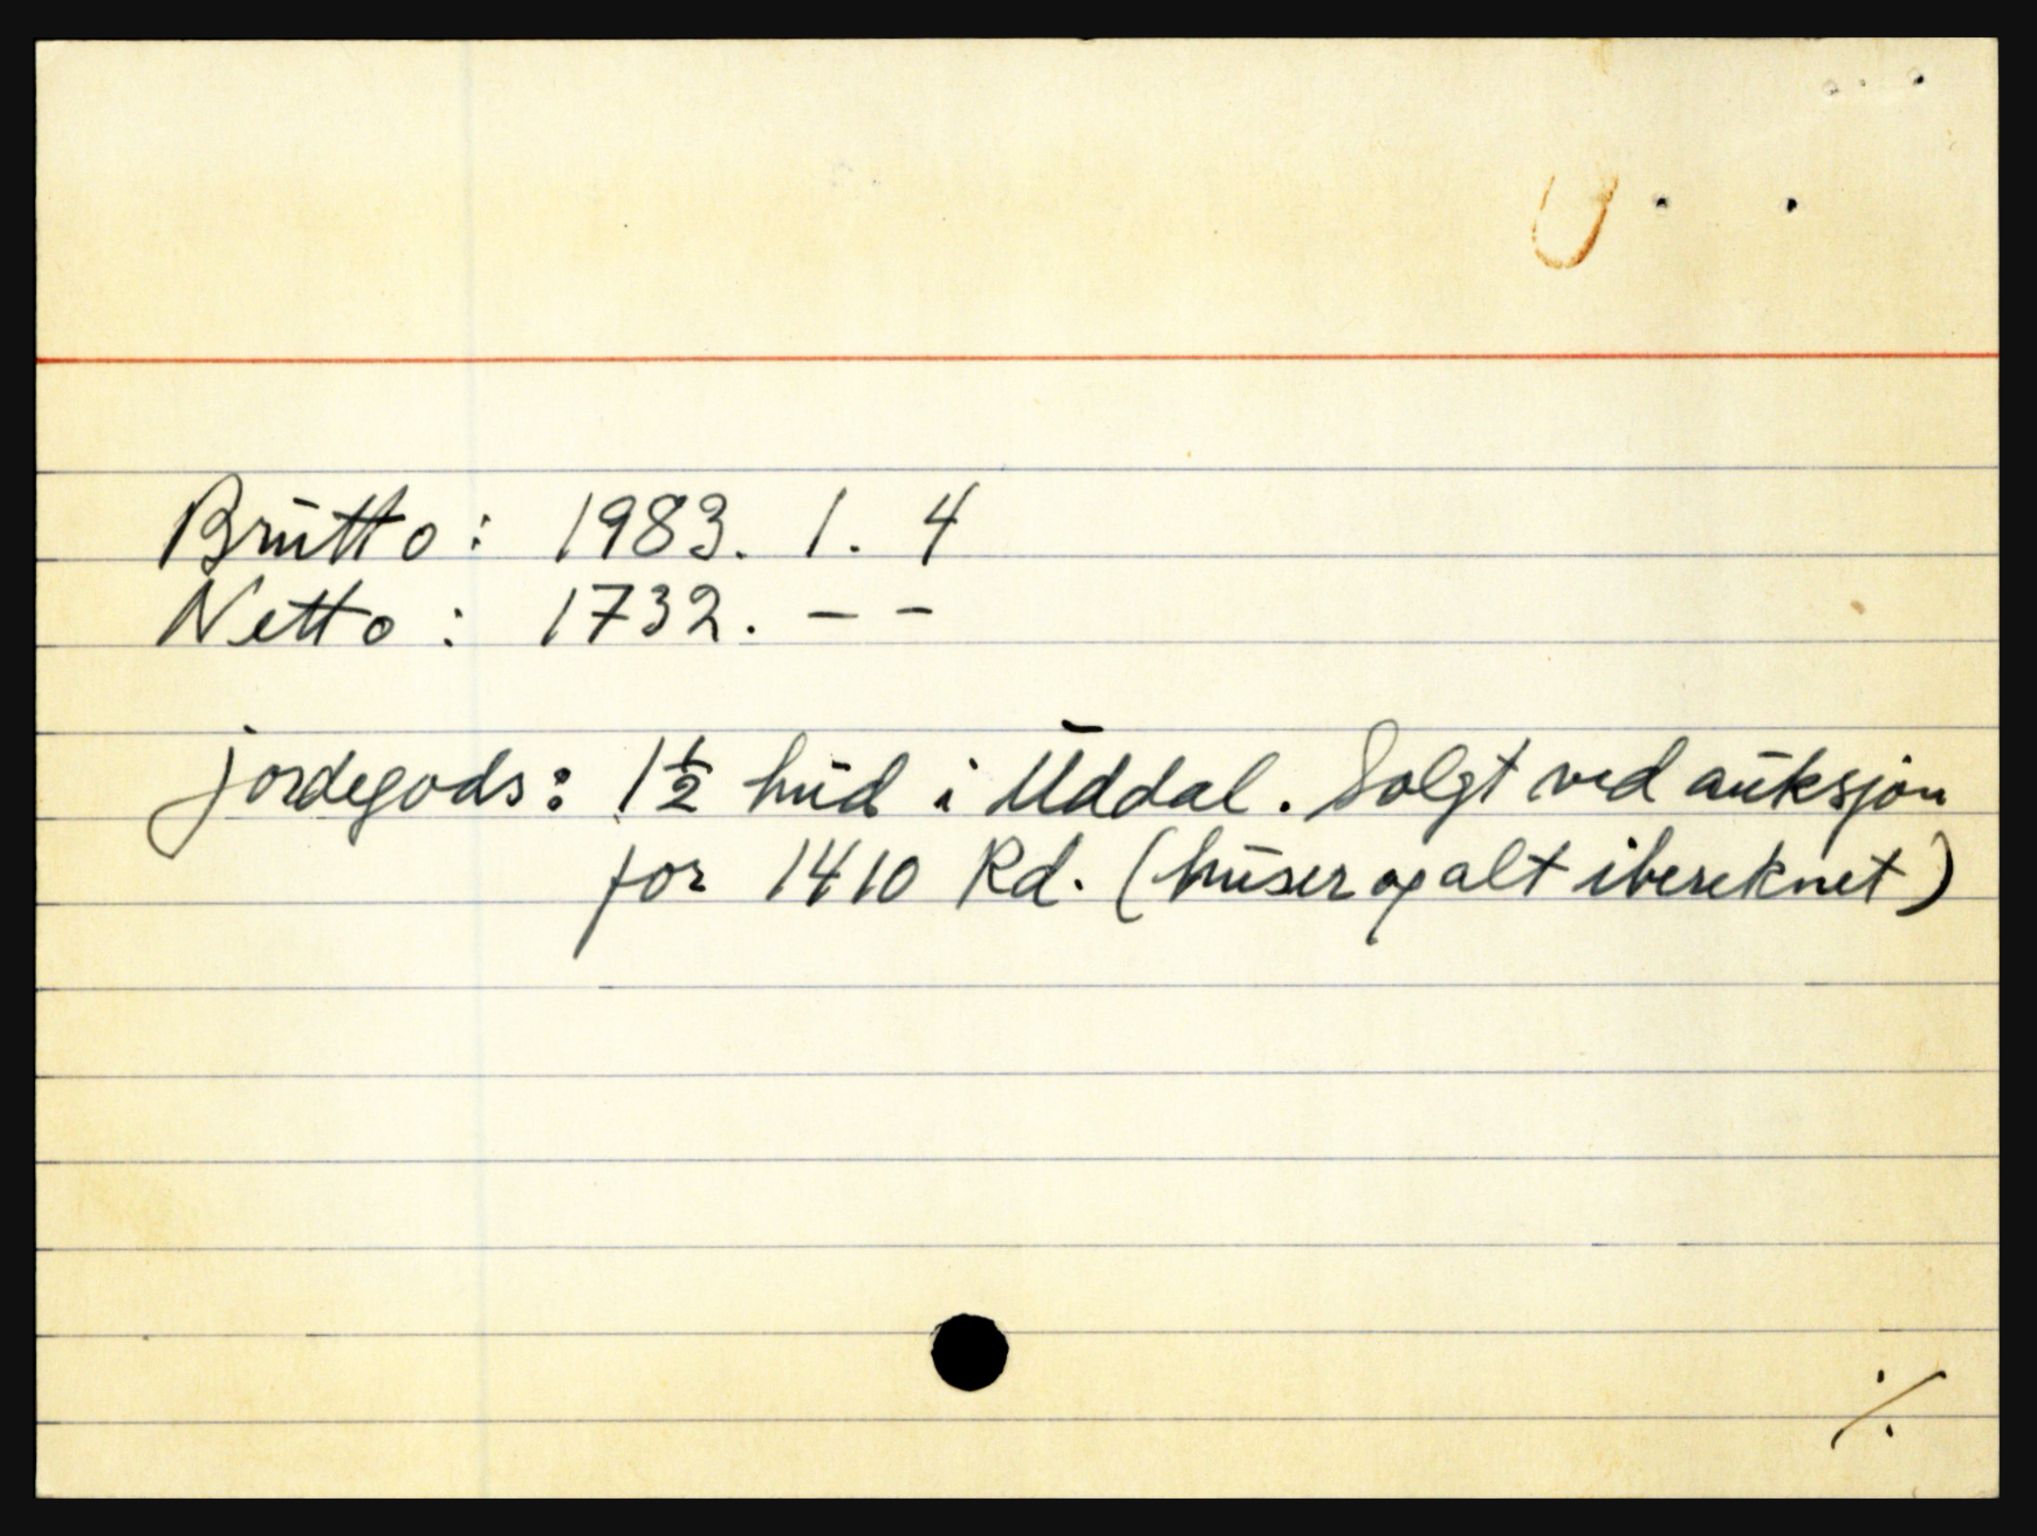 Brutto: 1983. 1. 4
Netto: 1732. – –
jordegods: 1½ hud i Uddal. Solgt ved auksjon
for 1410 Rd. (huser og alt ibereknet)
./.